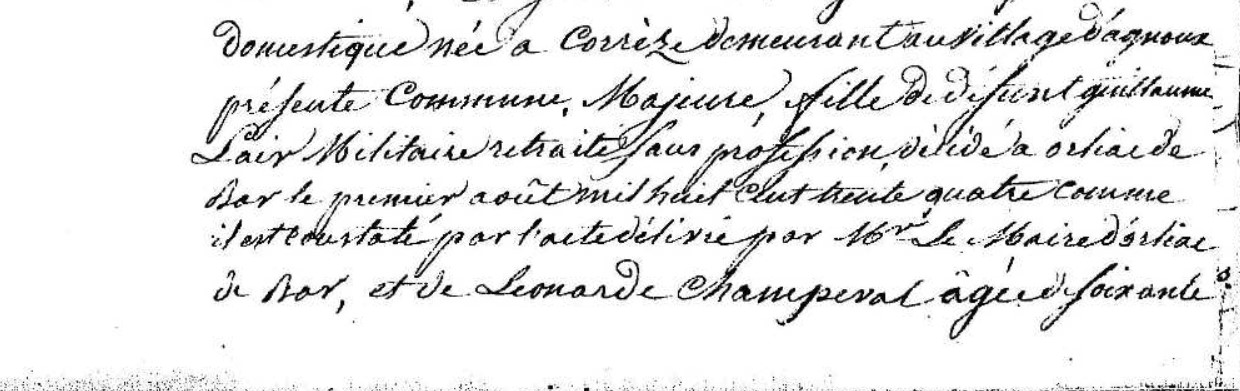 Domestique née a Corrèze demeurant au village d'agnoux
présente Commune, Majeure, fille de défunt guillaume
Lair Militaire retraité sans profession, décédé a orliac de
Bar le premier août mil huit cent trente quatre comme
il est constaté par l'acte délivré par Mr Le Maire d'orliac
de Bar, et de Leonarde Champeval âgée de soixante